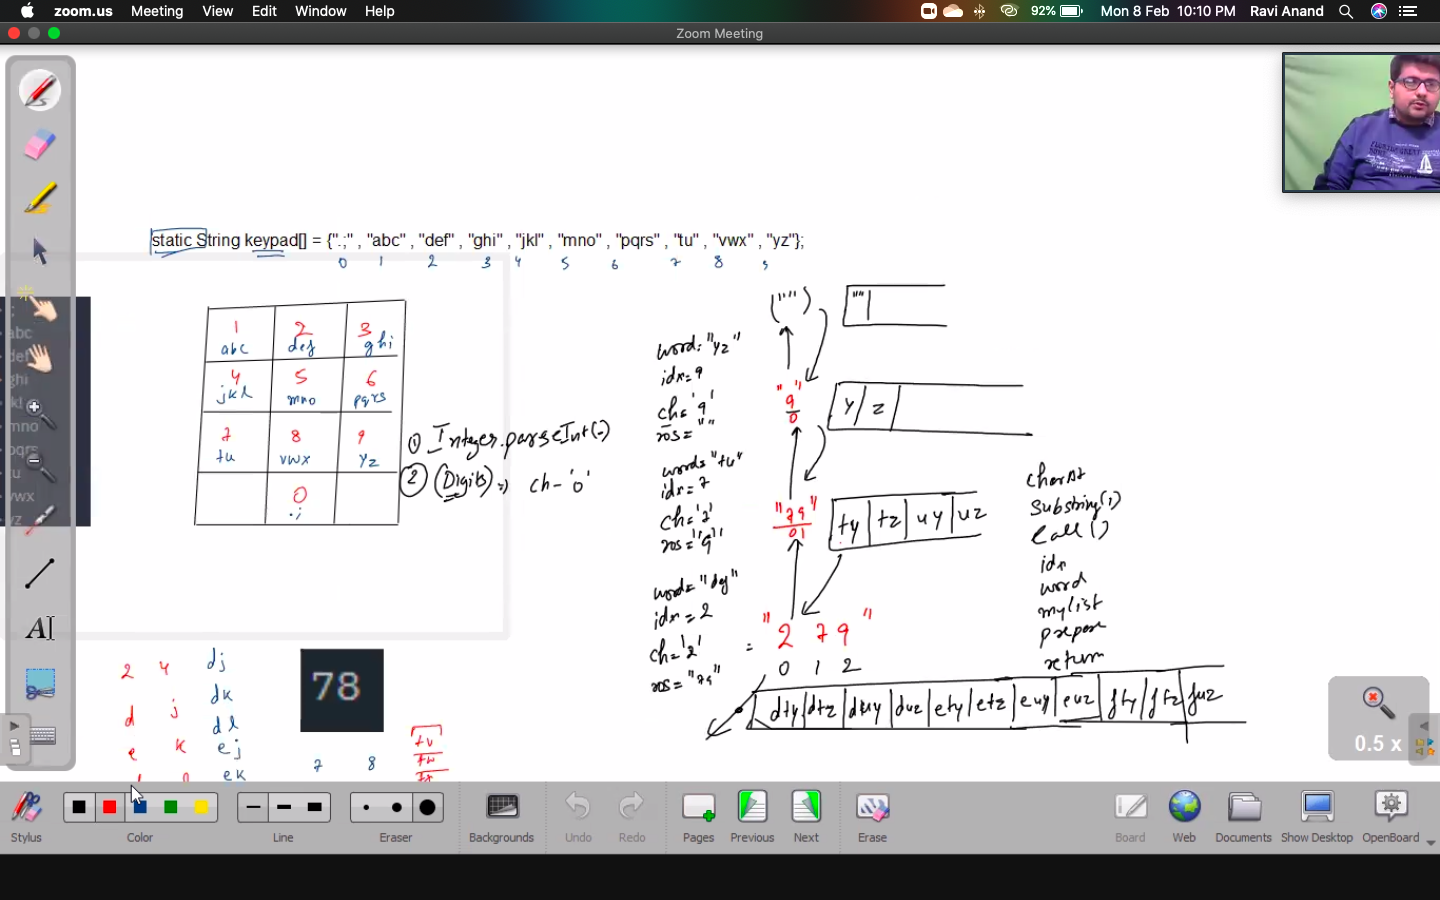 zoom.us Meeting View Edit Window Help 92% Mon 8 Feb 10:10 PM Ravi Anand
Zoom Meeting
static String keypad[] = {".;" , "abc" , "def" , "ghi" , "jkl" , "mno" , "pqrs" , "tu" , "vwx" , "yz"};
0 1 2 3 4 5 6 7 8 9
1 2 3
abc def ghi
4 5 6
jkl mno pqrs
7 8 9
tu vwx yz
0
.;
abc
def
ghi
jkl
mno
pqrs
tu
vwx
yz
① Integer.parseInt(-)
② (Digits) => ch - '0'
("") ""
word: "yz"
idx = 9
ch = '9'
ros = ""
"9"
0
y z
word = "tu"
idx = 7
ch = '7'
ros = "9"
"79"
01
ty tz uy uz
word = "def"
idx = 2
ch = '2'
ros = "79"
= "2 7 9"
0 1 2
dty dtz duy duz ety etz euy euz fty ftz fuz
charAt
substring(1)
call()
idx
word
mylist
prepare
return
2 4 dj
dk
d j dl
e k ej
ek
78
7 8
tv
tw
tx
0.5 x
Stylus Color Line Eraser Backgrounds Undo Redo Pages Previous Next Erase Board Web Documents Show Desktop OpenBoard